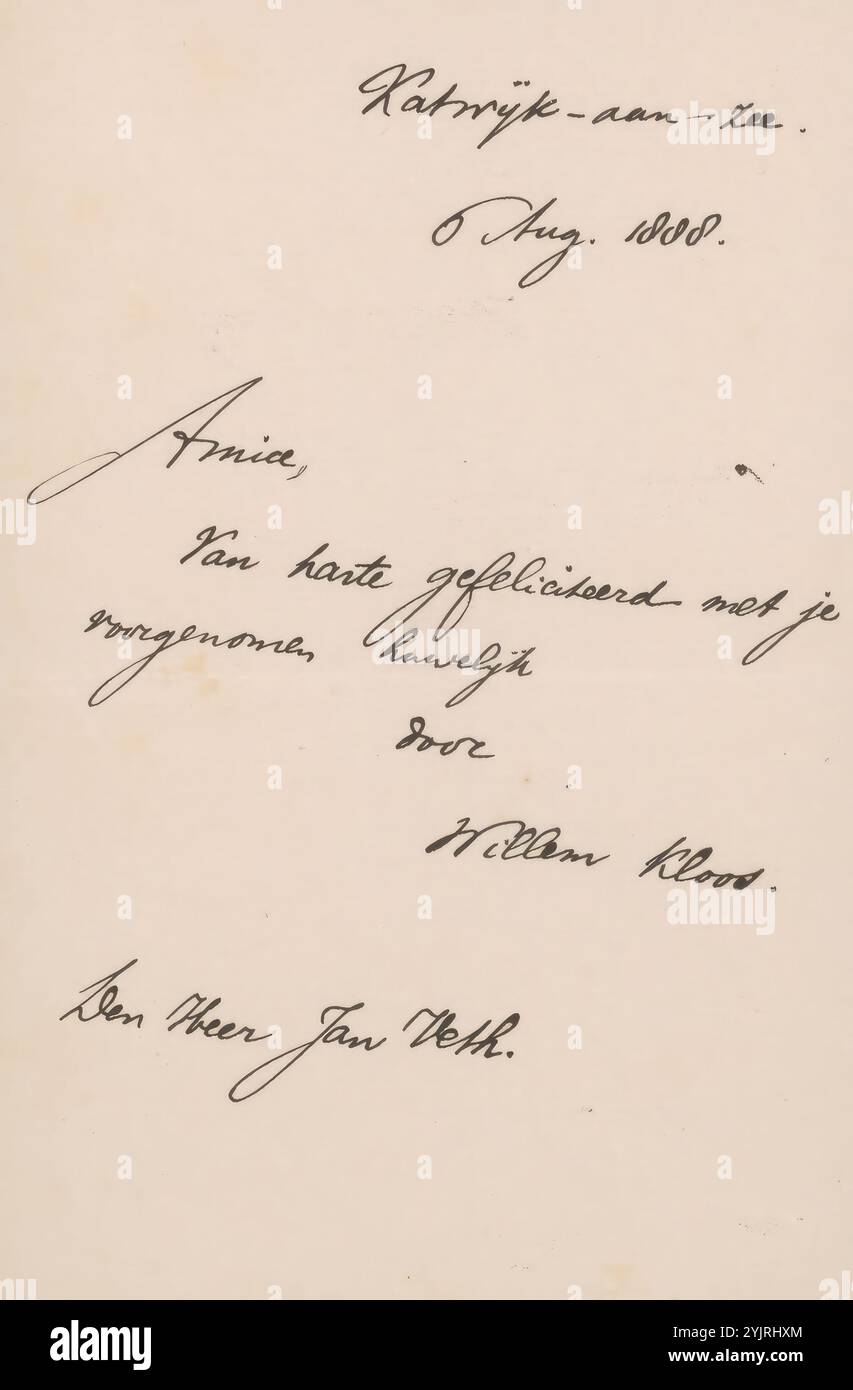 Katwijk-aan-Zee.
6 Aug. 1888.
Amice,
Van harte gefeliciteerd met je
voorgenomen huwelijk
door
Willem Kloos.
Den Heer Jan Veth.
alamy
Image ID: 2YJRHXM
www.alamy.com